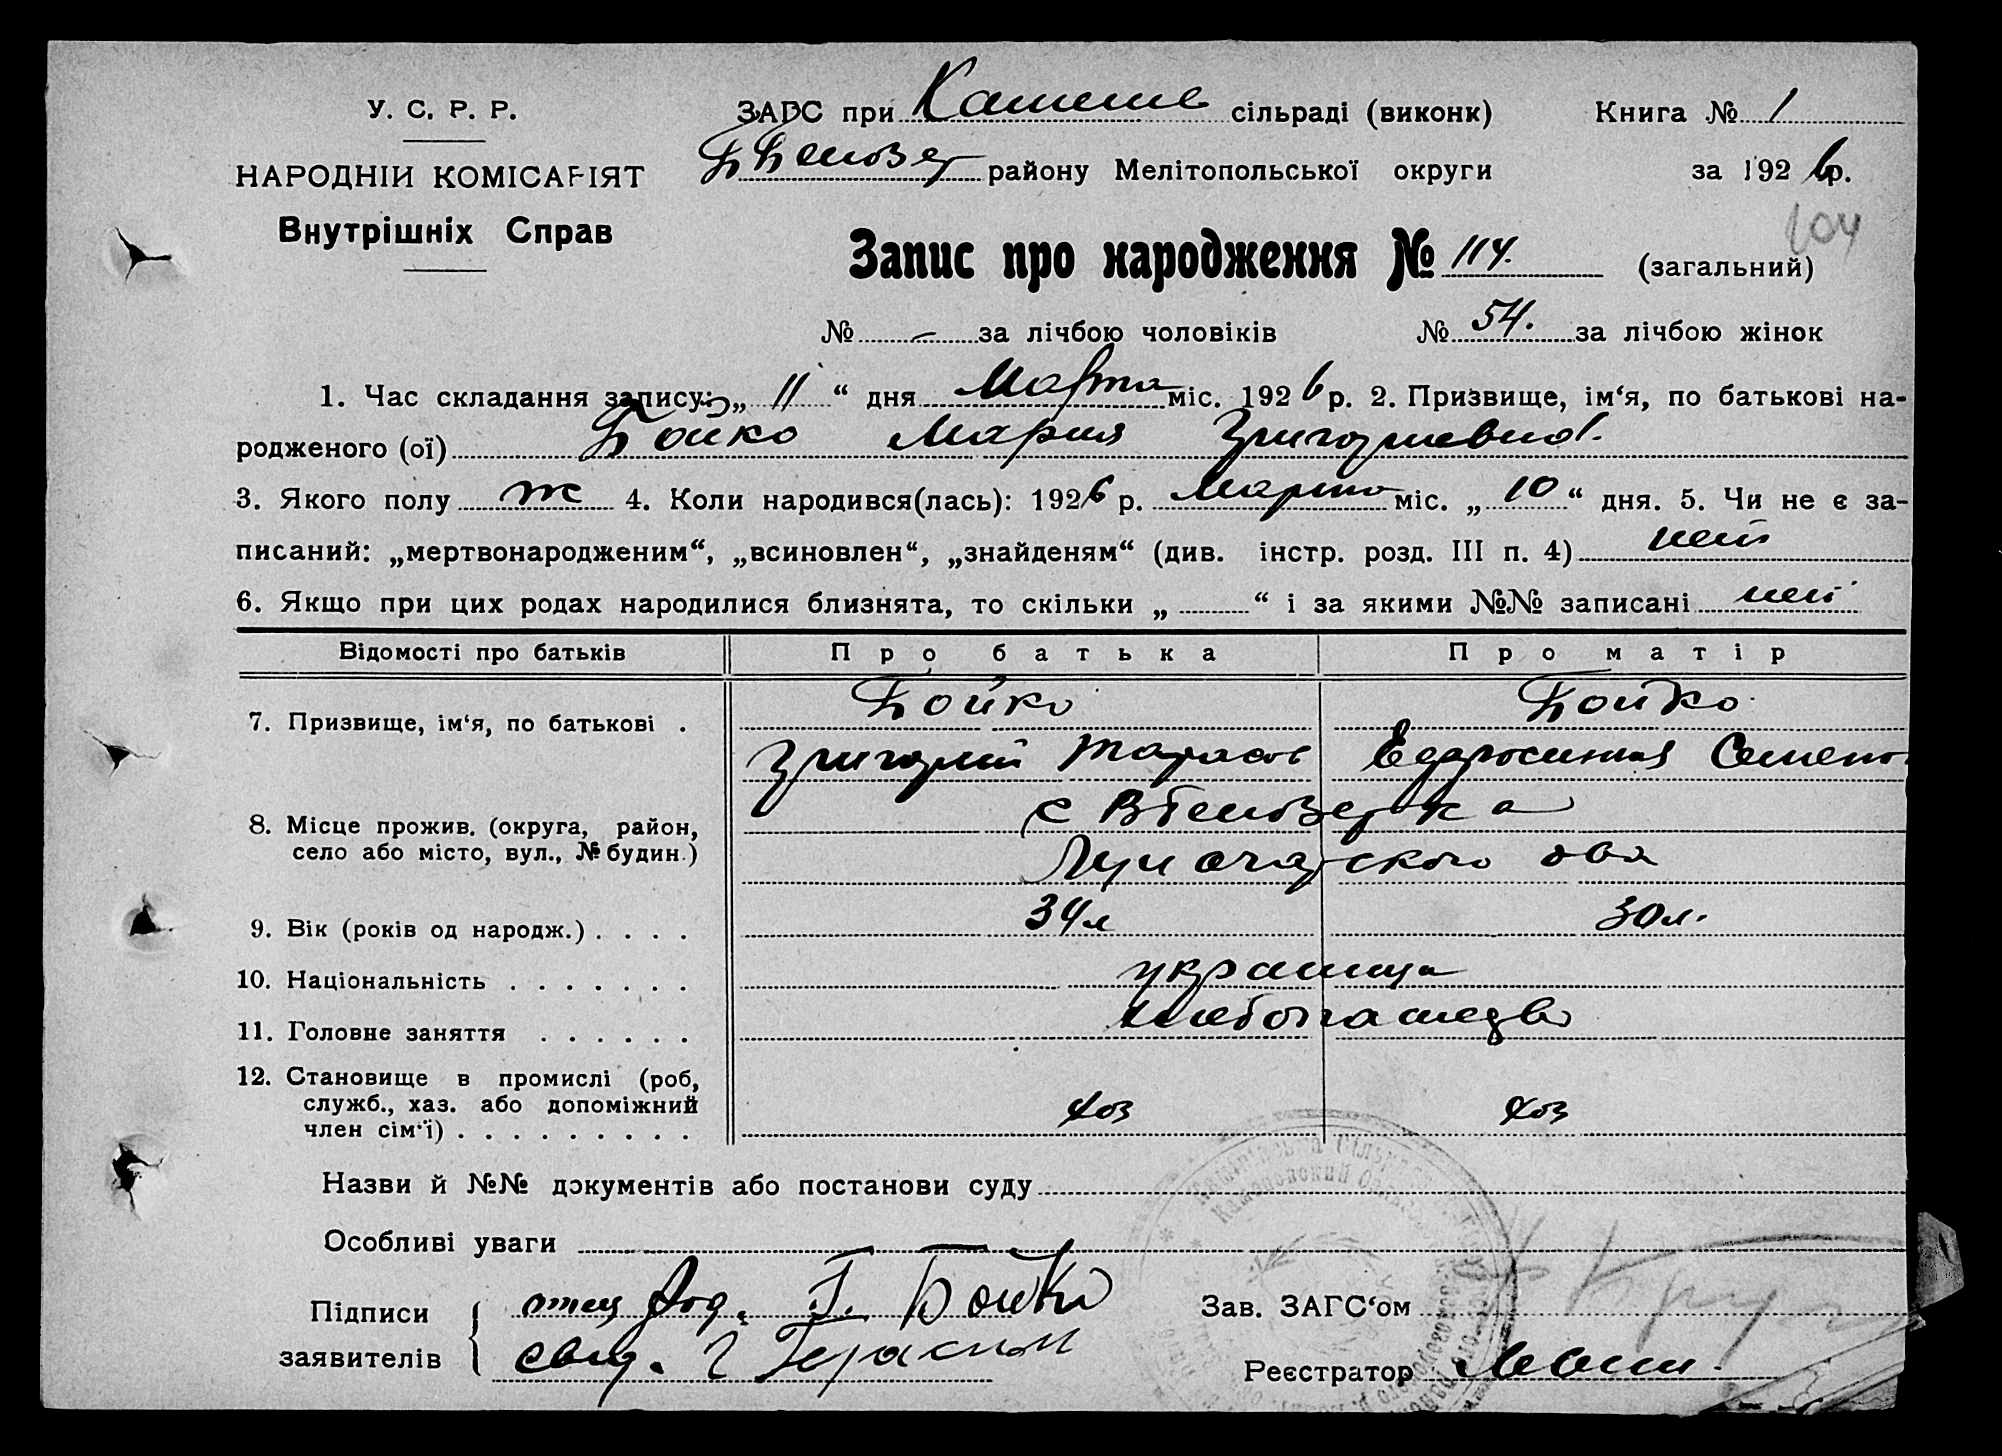 У. С. Р. Р.
НАРОДНІЙ КОМІСАРІЯТ
Внутрішніх Справ
ЗАГС при сільраді (виконк)
району Мелітопольської округи
Книга № 1
за 1926 р.
104
Запис про народження № 114. (загальний)
№ - за лічбою чоловіків № 54. за лічбою жінок
1. Час складання запису: „ 11 “ дня Марта міс. 1926 р. 2. Призвище, ім‘я, по батькові на-
родженого (ої) Бойко Мария Григориевна.
3. Якого полу ж 4. Коли народився(лась): 1926 р. Марта міс. „ 10 “ дня. 5. Чи не є за-
писаний: „мертвонародженим“, „всиновлен“, „знайденям“ (див. інстр. розд. III п. 4) нет
6. Якщо при цих родах народилися близнята, то скільки „ “ і за якими №№ записані нет
Відомості про батьків Про батька Про матір
7. Призвище, ім‘я, по батькові . Бойко Бойко
Григорий Тарасов Семено
8. Місце прожив. (округа, район, с ВБелозерка
село або місто, вул., № будин.)
9. Вік (років од народж.) . . . . 34 л 30 л.
10. Національність . . . . . . . украинца
11. Головне заняття . . . . . . хлебопашедв
12. Становище в промислі (роб,
служб., хаз. або допоміжний хоз хоз
член сім‘ї) . . . . . . . . .
Назви й №№ документів або постанови суду
Особливі уваги
Підписи отец Г. Бойко
заявителів свид. Г Герасим
Зав. ЗАГС‘ом
Реєстратор